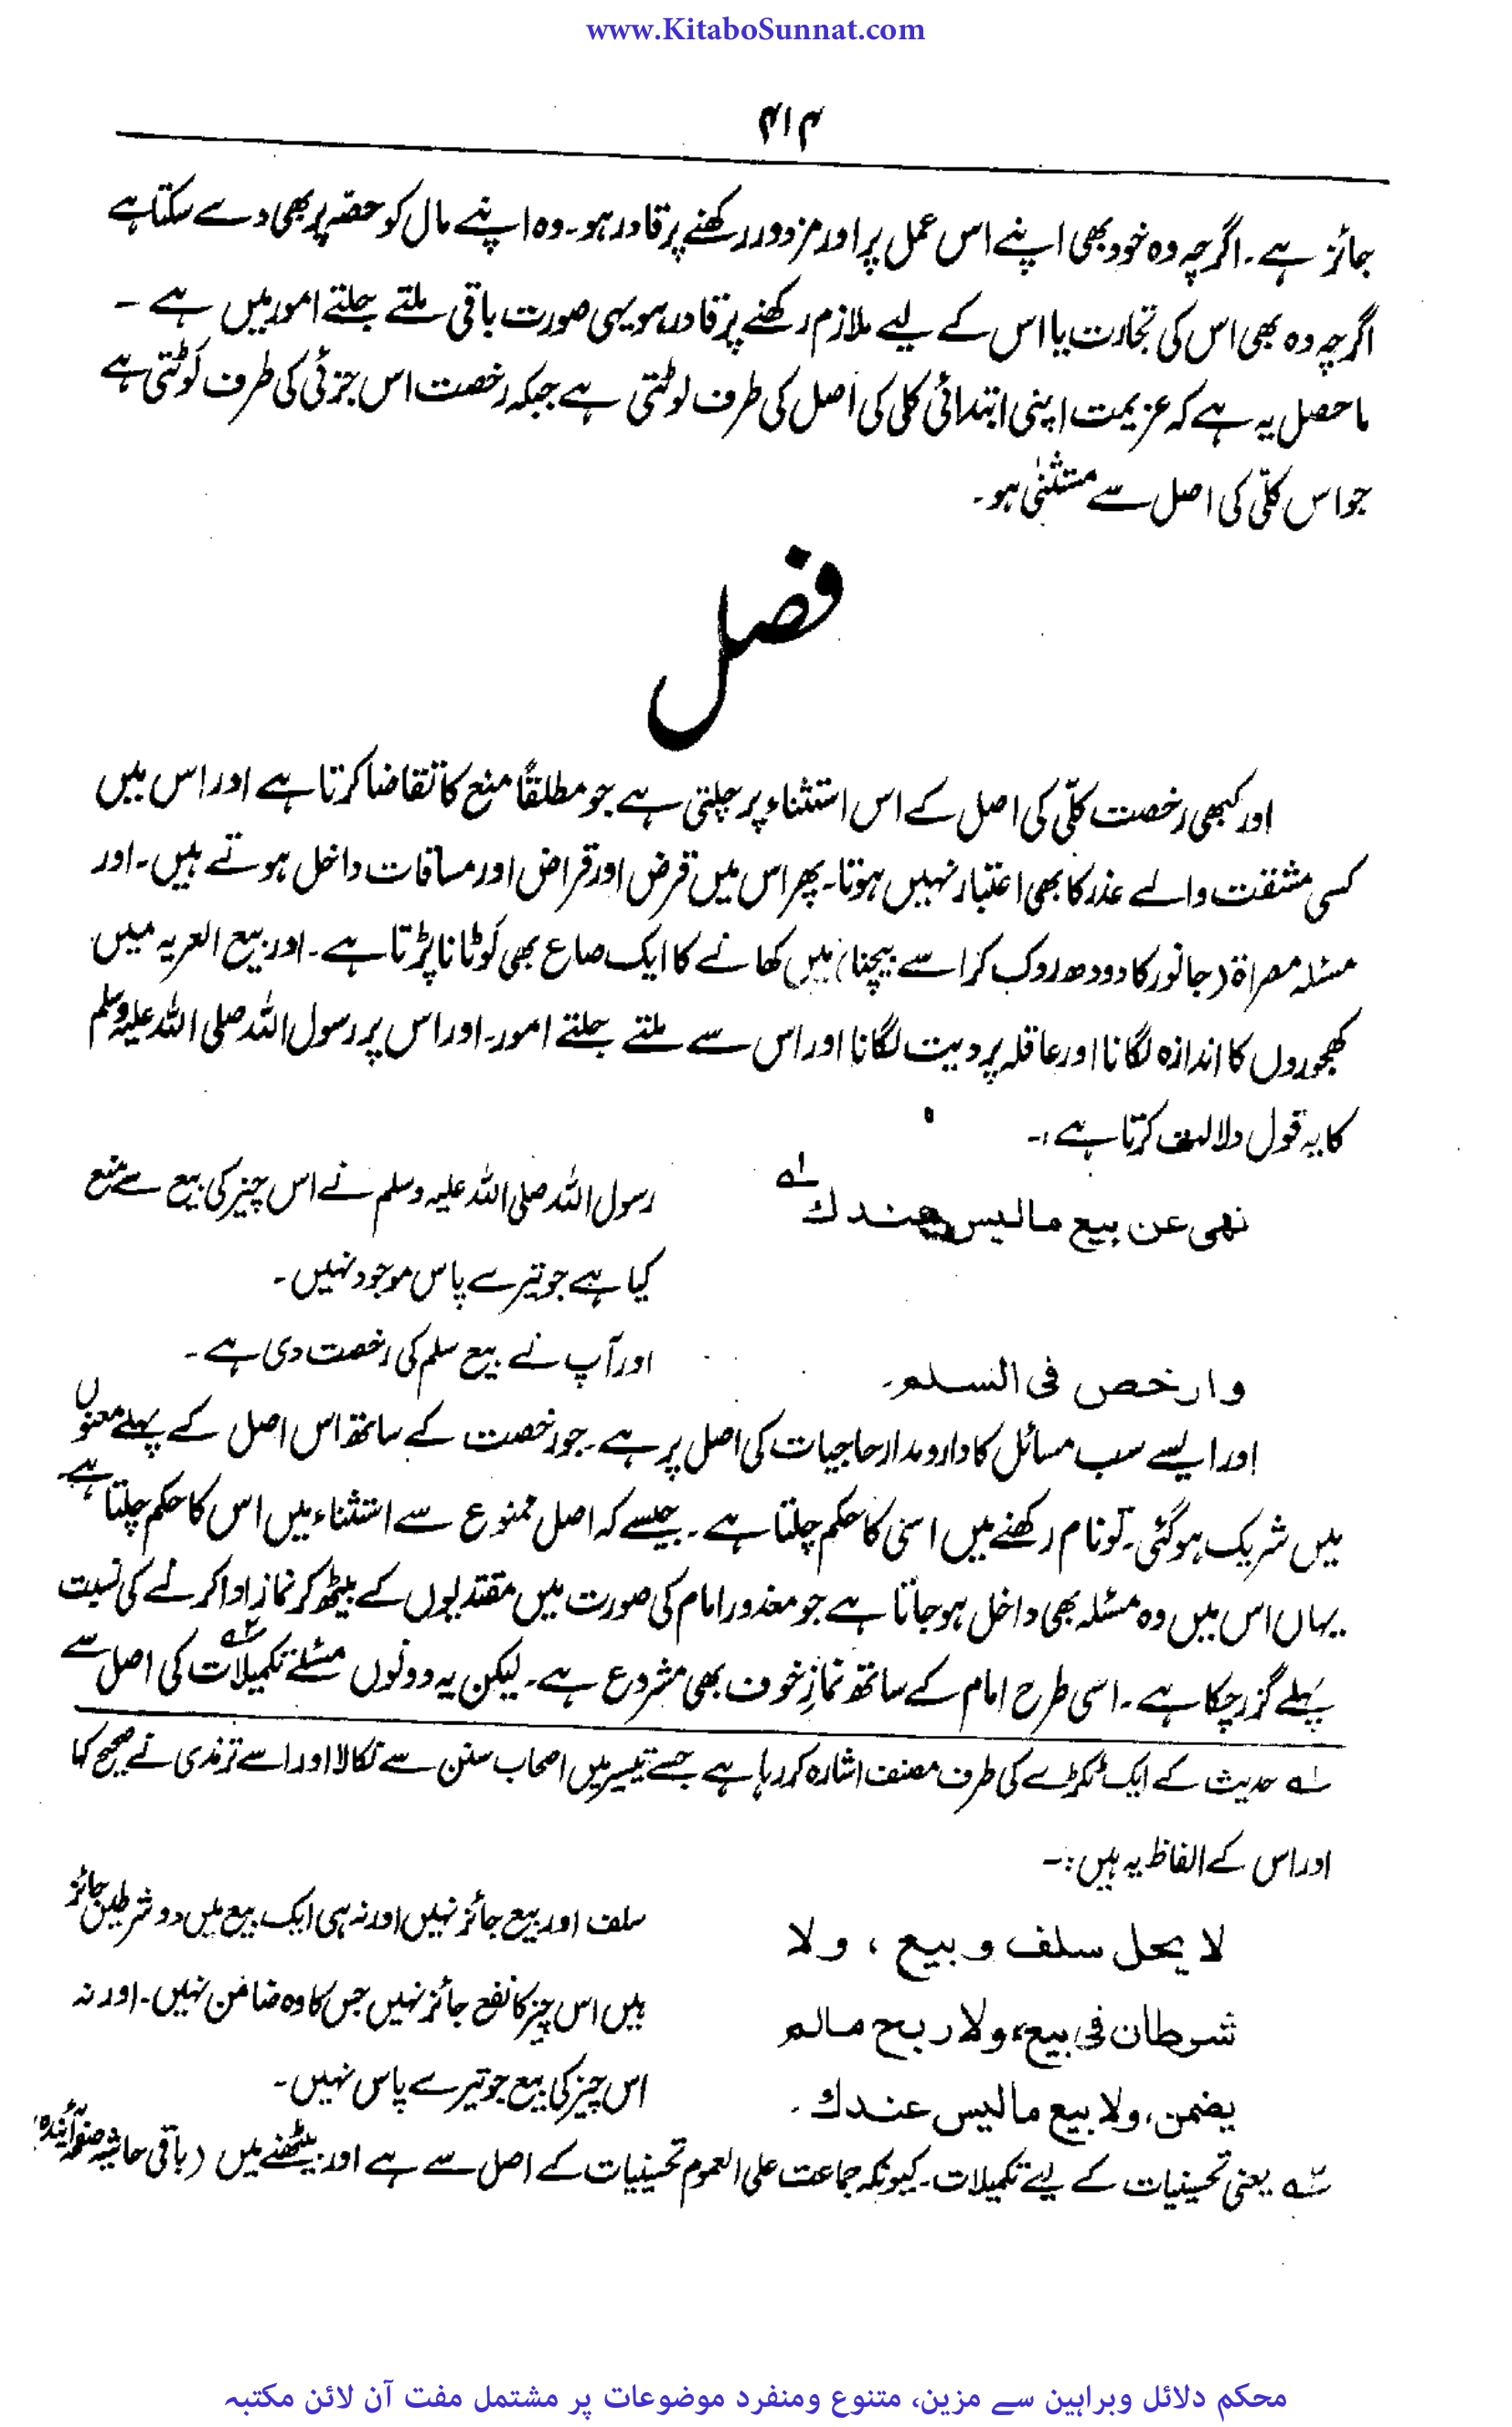 www.KitaboSunnat.com
۴۱۴
جائز ہے۔ اگرچہ وہ خود بھی اپنے اس عمل پر اور مزدور رکھنے پر قادر ہو۔ وہ اپنے مال کو حصّہ پر بھی دے سکتا ہے
اگرچہ وہ بھی اس کی تجارت یا اس کے لیے ملازم رکھنے پر قادر ہو یہی صورت باقی ملتے جلتے امور میں ہے ۔
ماحصل یہ ہے کہ عزیمت اپنی ابتدائی کلی کی اصل کی طرف لوٹتی ہے جبکہ رخصت اس جزئی کی طرف لوٹتی ہے
جو اس کلّی کی اصل سے مستثنٰی ہو۔
فصل
اور کبھی رخصت کلّی کی اصل کے اس استثناء پر چلتی ہے جو مطلقاً منع کا تقاضا کرتا ہے اور اس میں
کسی مشقت والے عذر کا بھی اعتبار نہیں ہوتا۔ پھر اس میں قرض اور قراض اور مساقات داخل ہوتے ہیں۔ اور
مسئلہ مصراۃ (جانور کا دودھ روک کر اسے بیچنا) میں کھانے کا ایک صاع بھی لوٹانا پڑتا ہے۔ اور بیع العریہ میں
کھجوروں کا اندازہ لگانا اور عاقلہ پر دیت لگانا اور اس سے ملتے جلتے امور۔ اور اس پر رسول اللہ صلی اللہ علیہ وسلم
کا یہ قول دلالت کرتا ہے :۔
نهى عن بيع ماليس عندك لہ
رسول اللہ صلی اللہ علیہ وسلم نے اس چیز کی بیع سے منع
کیا ہے جو تیرے پاس موجود نہیں۔
وارخص فى السلم۔
اور آپ نے بیع سلم کی رخصت دی ہے۔
اور ایسے سب مسائل کا دارومدار حاجیات کی اصل پر ہے۔ جو رخصت کے ساتھ اس اصل کے پہلے معنوں
میں شریک ہوگئی۔ تو نام رکھنے میں اسی کا حکم چلتا ہے۔ جیسے کہ اصل ممنوع سے استثناء میں اس کا حکم چلتا ہے
یہاں اس میں وہ مسئلہ بھی داخل ہوجاتا ہے جو معذور امام کی صورت میں مقتدیوں کے بیٹھ کر نماز ادا کرنے کی نسبت
پہلے گزرچکا ہے۔ اسی طرح امام کے ساتھ نمازِ خوف بھی مشروع ہے۔ لیکن یہ دونوں مسئلے تکمیلات ۲ہ کی اصل سے
لہ حدیث کے ایک ٹکڑے کی طرف مصنف اشارہ کررہا ہے جسے تیسیر میں اصحاب سنن سے نکالا اور اسے ترمذی نے صحیح کہا
اور اس کے الفاظ یہ ہیں :۔
لا يحل سلف وبيع ، ولا
شرطان فى بيع، ولا ربح مالم
يضمن، ولا بيع ماليس عندك .
سلف اور بیع جائز نہیں اور نہ ہی ایک بیع میں دو شرطیں جائز
ہیں اس چیز کا نفع جائز نہیں جس کا وہ ضامن نہیں۔ اور نہ
اس چیز کی بیع جو تیرے پاس نہیں۔
۲ہ یعنی تحسینیات کے لیے تکمیلات۔ کیونکہ جماعت علی العموم تحسینیات کے اصل سے ہے اور بیٹھنے میں (باقی حاشیہ صفحہ آئندہ)
محکم دلائل وبراہین سے مزین، متنوع ومنفرد موضوعات پر مشتمل مفت آن لائن مکتبہ